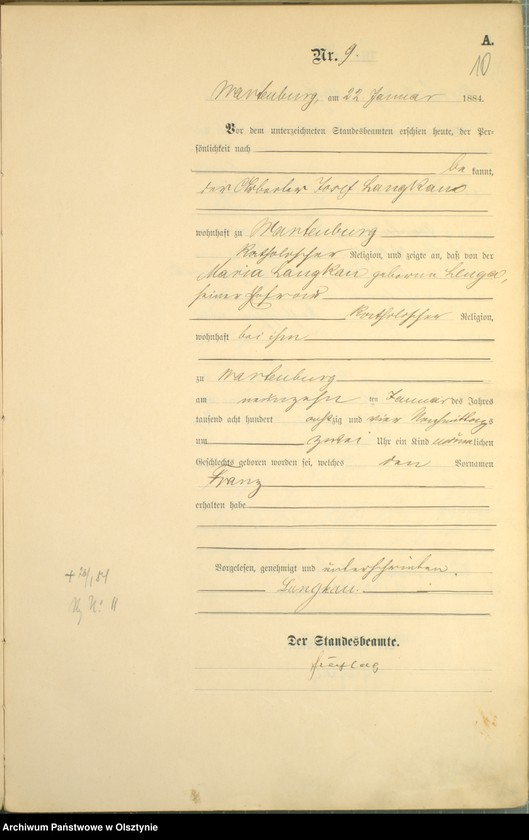 A.
Nr. 9.
10
Wartenburg, am 22 Januar 1884.
Vor dem unterzeichneten Standesbeamten erschien heute, der Per-
sönlichkeit nach
be kannt,
der Josef Langkau
wohnhaft zu Wartenburg
katholischer Religion, und zeigte an, daß von der
Maria Langkau geborne
seiner Ehefrau
katholischer Religion,
wohnhaft bei ihm
zu Wartenburg
am neunzehn ten Januar des Jahres
tausend acht hundert achtzig und vier Nachmittags
um zwei Uhr ein Kind männlichen
Geschlechts geboren worden sei, welches den Vornamen
Franz
erhalten habe
Vorgelesen, genehmigt und unterschrieben.
Langkau.
Der Standesbeamte.
Archiwum Państwowe w Olsztynie